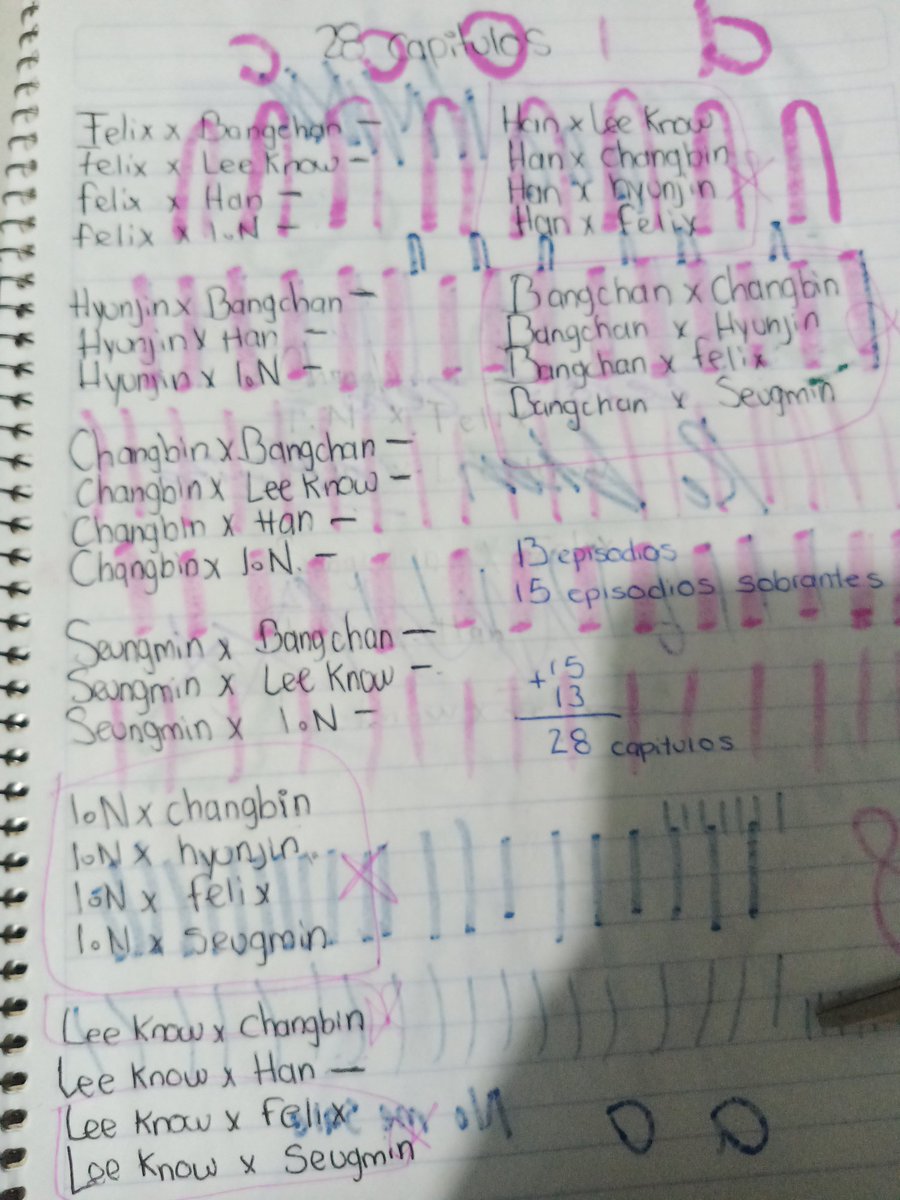 28 capitulos
Felix x Bangchan —
felix x Lee Know —
felix x Han —
felix x I.N —
Hyunjin x Bangchan —
Hyunjin x Han —
Hyunjin x I.N —
Changbin x Bangchan —
Changbin x Lee Know —
Changbin x Han —
Changbin x I.N. —
Seungmin x Bangchan —
Seungmin x Lee Know —
Seungmin x I.N —
I.N x changbin
I.N x hyunjin
I.N x felix
I.N x Seugmin
Lee Know x Changbin
Lee Know x Han —
Lee Know x felix
Lee Know x Seugmin
Han x Lee Know
Han x Changbin
Han x hyunjin
Han x felix
Bangchan x Changbin
Bangchan x Hyunjin
Bangchan x felix
Bangchan x Seugmin
13 episodios
15 episodios sobrantes
+15
13
28 capitulos